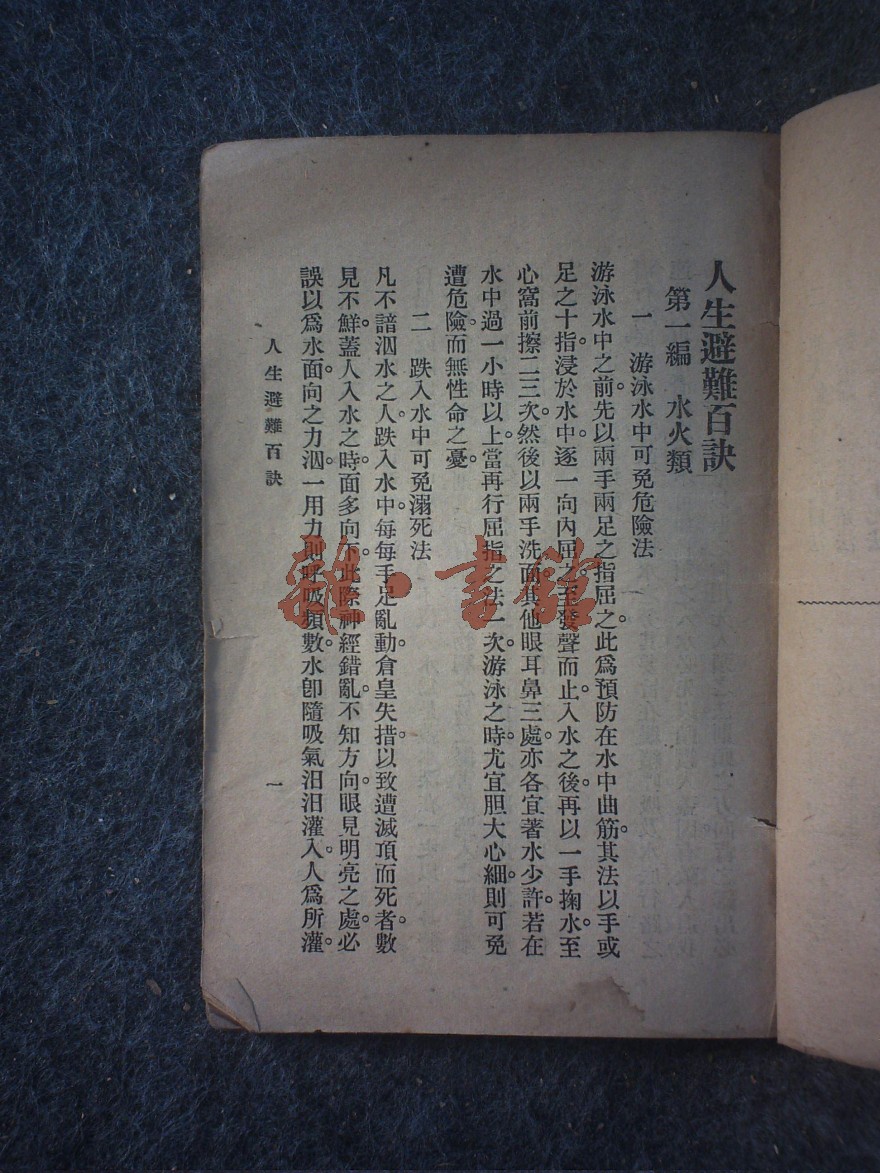 人生避難百訣
第一編　水火類
一　游泳水中可免危險法
游泳水中之前。先以兩手兩足之指屈之。此爲預防在水中曲筋。其法以手或
足之十指。浸於水中。逐一向內屈之。至發聲而止。入水之後。再以一手掬水至
心窩前擦二三次。然後以兩手洗面。其他眼耳鼻三處。亦各宜著水少許。若在
水中過一小時以上。當再行屈指之法一次。游泳之時。尤宜胆大心細。則可免
遭危險。而無性命之憂。
二　跌入水中可免溺死法
凡不諳泅水之人。跌入水中。每每手足亂動。倉皇失措。以致遭滅頂而死者。數
見不鮮。蓋人入水之時。面多向下。此際神經錯亂。不知方向。眼見明亮之處。必
誤以爲水面。向之力泅。一用力則呼吸頻數。水卽隨吸氣汨汨灌入。人爲所灌。
人生避難百訣
一
雜·書館